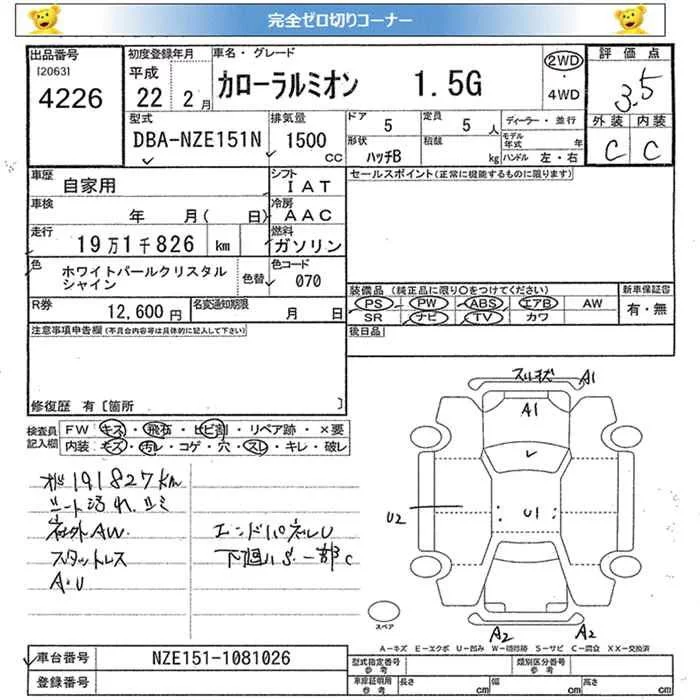 完全ゼロ切りコーナー
出品番号 初度登録年月 車名・グレード 評価点
[2063] 平成 カローラルミオン 1.5G 2WD ・ 4WD 3.5
4226 22 2月 外装 内装
C C
型式 排気量 ドア 定員 ディーラー・並行
DBA-NZE151N 1500 CC 5 5 人 モデル年式 年
形状 積載
ハッチB kg ハンドル 左・右
車歴 シフト セールスポイント(正常に機能するものに限ります)
自家用 IAT
車検 冷房
年 月( 日) AAC
走行 燃料
19万1千826 km ガソリン
色 色替 色コード
ホワイトパールクリスタルシャイン 070
装備品(純正品に限り○をつけてください) 新車保証書
PS PW ABS エアB AW 有・無
SR ナビ TV カワ
R券 12,600円 名変通知期限 月 日
注意事項申告欄(不具合内容等は具体的に記入して下さい) 後日品
修復歴 有〔箇所 〕
検査員記入欄 FW キズ・飛石・ヒビ割・リペア跡・×要
内装:キズ・汚れ・コゲ・穴・スレ・キレ・破レ
191827km
シート汚れ、シミ
社外AW.
スタットレス
A・U
エンドパネルU
下廻りS.一部C
A1
A1
U2
U1
A2
A2
スペア
A-キズ E-エクボ U-凹み W-補修跡 S-サビ C-腐食 XX-交換済
車台番号 NZE151-1081026
登録番号
型式指定番号 参考 類別区分番号 参考
車庫証明用 参考 長さ cm 幅 cm 高さ cm